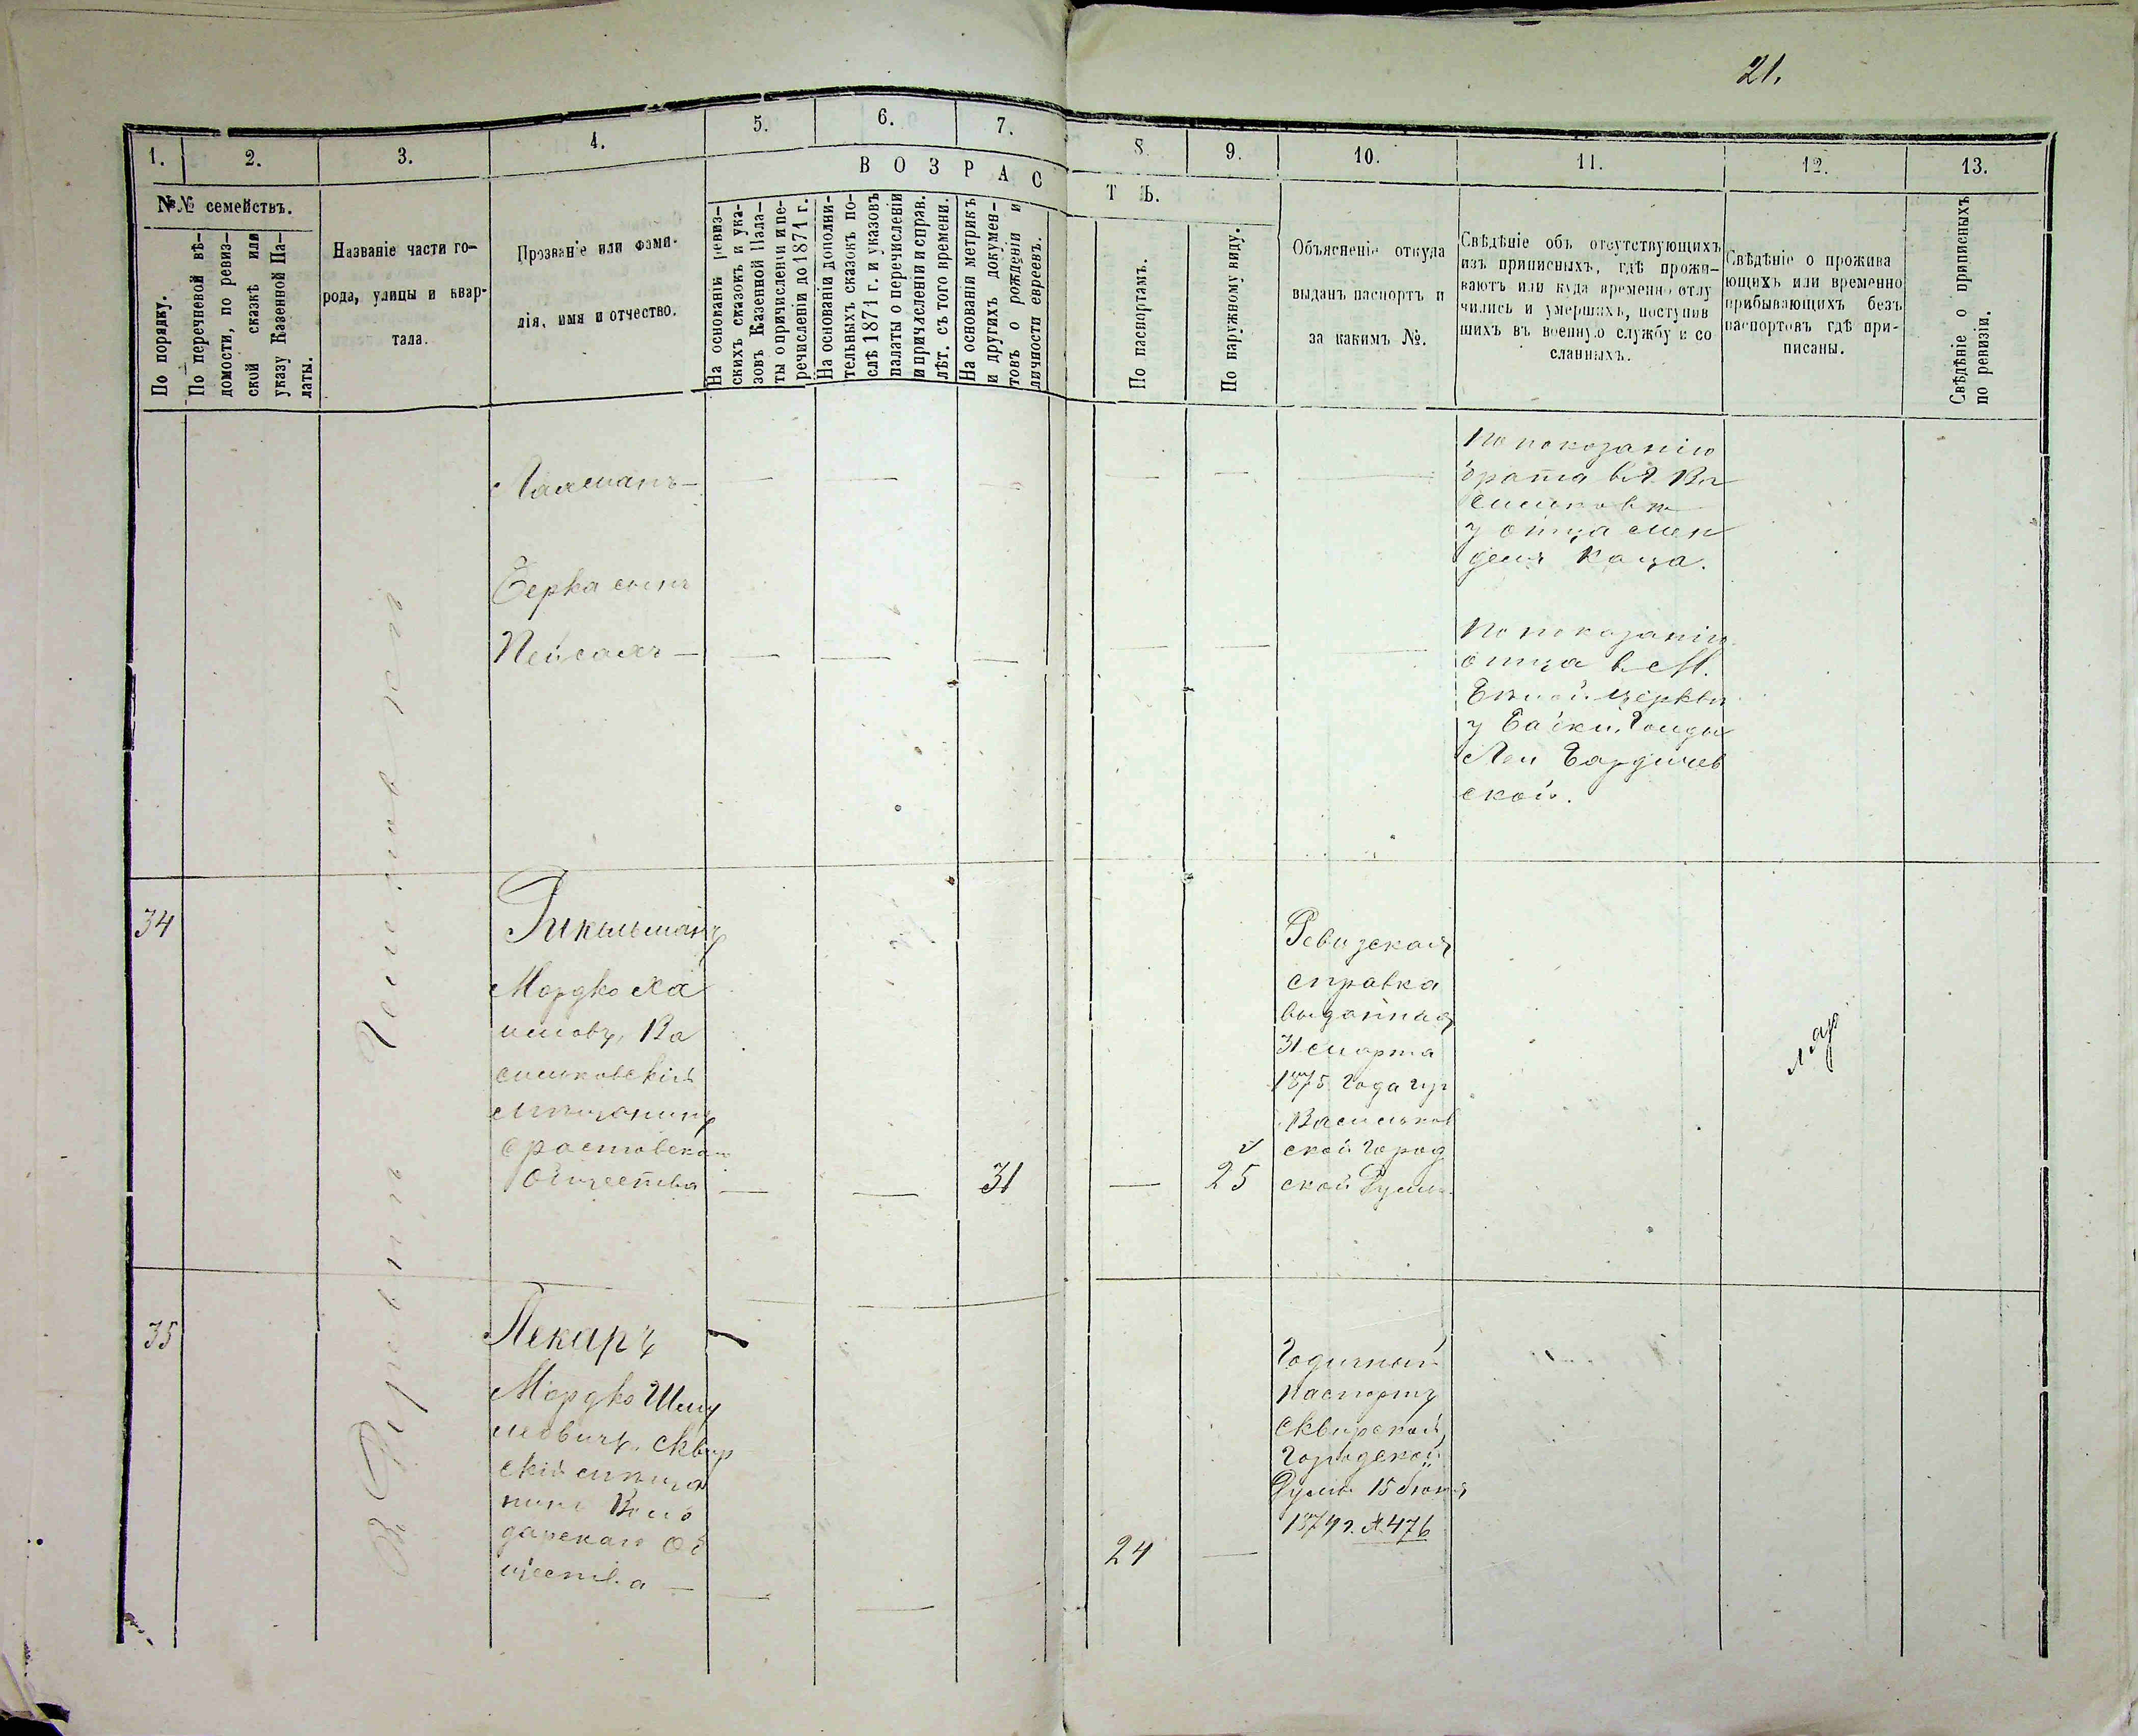 21.
1.
2.
3.
4.
5.
6.
7.
8.
9.
10.
11.
12.
13.
В О З Р А С
Т Ъ.
№№ семействъ.
По порядку.
По перечневой вѣ-
домости, по ревиз-
ской сказкѣ или
указу Казенной Па-
латы.
Названіе части го-
рода, улицы и квар-
тала.
Прозваніе или фами-
лія, имя и отчество.
На основаніи ревиз-
скихъ сказокъ и ука-
зовъ Казенной Пала-
ты о причисленіи и пе-
речисленіи до 1871 г.
На основаніи дополни-
тельныхъ сказокъ по-
слѣ 1871 г. и указовъ
палаты о перечисленіи
и причисленіи и справ.
лѣт. съ того времени.
На основаніи метрикъ
и другихъ докумен-
товъ о рожденіи и
личности евреевъ.
По паспортамъ.
По наружному виду.
Объясненіе откуда
выданъ паспортъ и
за какимъ №.
Свѣдѣніе объ отсутствующихъ
изъ приписныхъ, гдѣ прожи-
ваютъ или куда временно отлу
чились и умершихъ, поступив
шихъ въ военную службу и со
сланныхъ.
Свѣдѣніе о прожива
ющихъ или временно
прибывающихъ безъ
паспортовъ гдѣ при-
писаны.
Свѣдѣніе о приписныхъ
по ревизіи.
По показанію
брата въ г. Ва
сильковѣ
у отца Мен
деля Каца.
Берка сынъ
Пейсахъ — — — — — —
По показанію
отца в М.
Бѣлой Церкви
у Бейки
Бардичев
ской.
34
Мордко Ха
имовъ, Ва
сильковскій
мѣщанинъ
Фастовскаго
Общества — — 31 — 25
Ревизская
справка
выданная
31 марта
1875 года изъ
Васильков
ской Город
ской Думы.
35
Пекарь
Мордко Шму
левичъ, Сквир
скій мѣща
нинъ Воло
дарскаго Об
щества — — — 24 —
Годичный
паспортъ
Сквирской
Городской
Думы 15 Іюня
1874 г. № 476